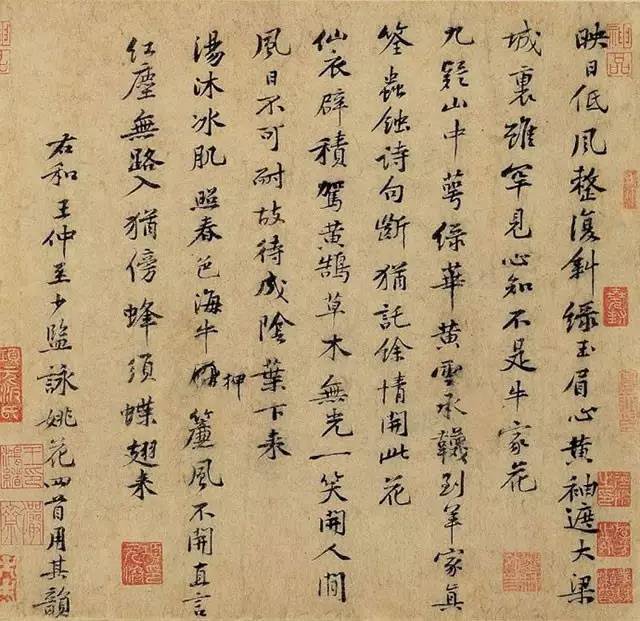 映日低風整復斜綠玉眉心黃袖遮大梁
城裏雖罕見心知不是牛家花
九疑山中萼綠華黃雲承襪到羊家真
筌蟲蝕詩句斷猶託餘情開此花
仙衣辟積駕黃鵠草木無光一笑開人間
風日不可耐故待成陰葉下來
湯沐冰肌照春色海牛押簾風不開直言
紅塵無路入猶傍蜂須蝶翅來
右和王仲至少監詠姚花四首用其韻